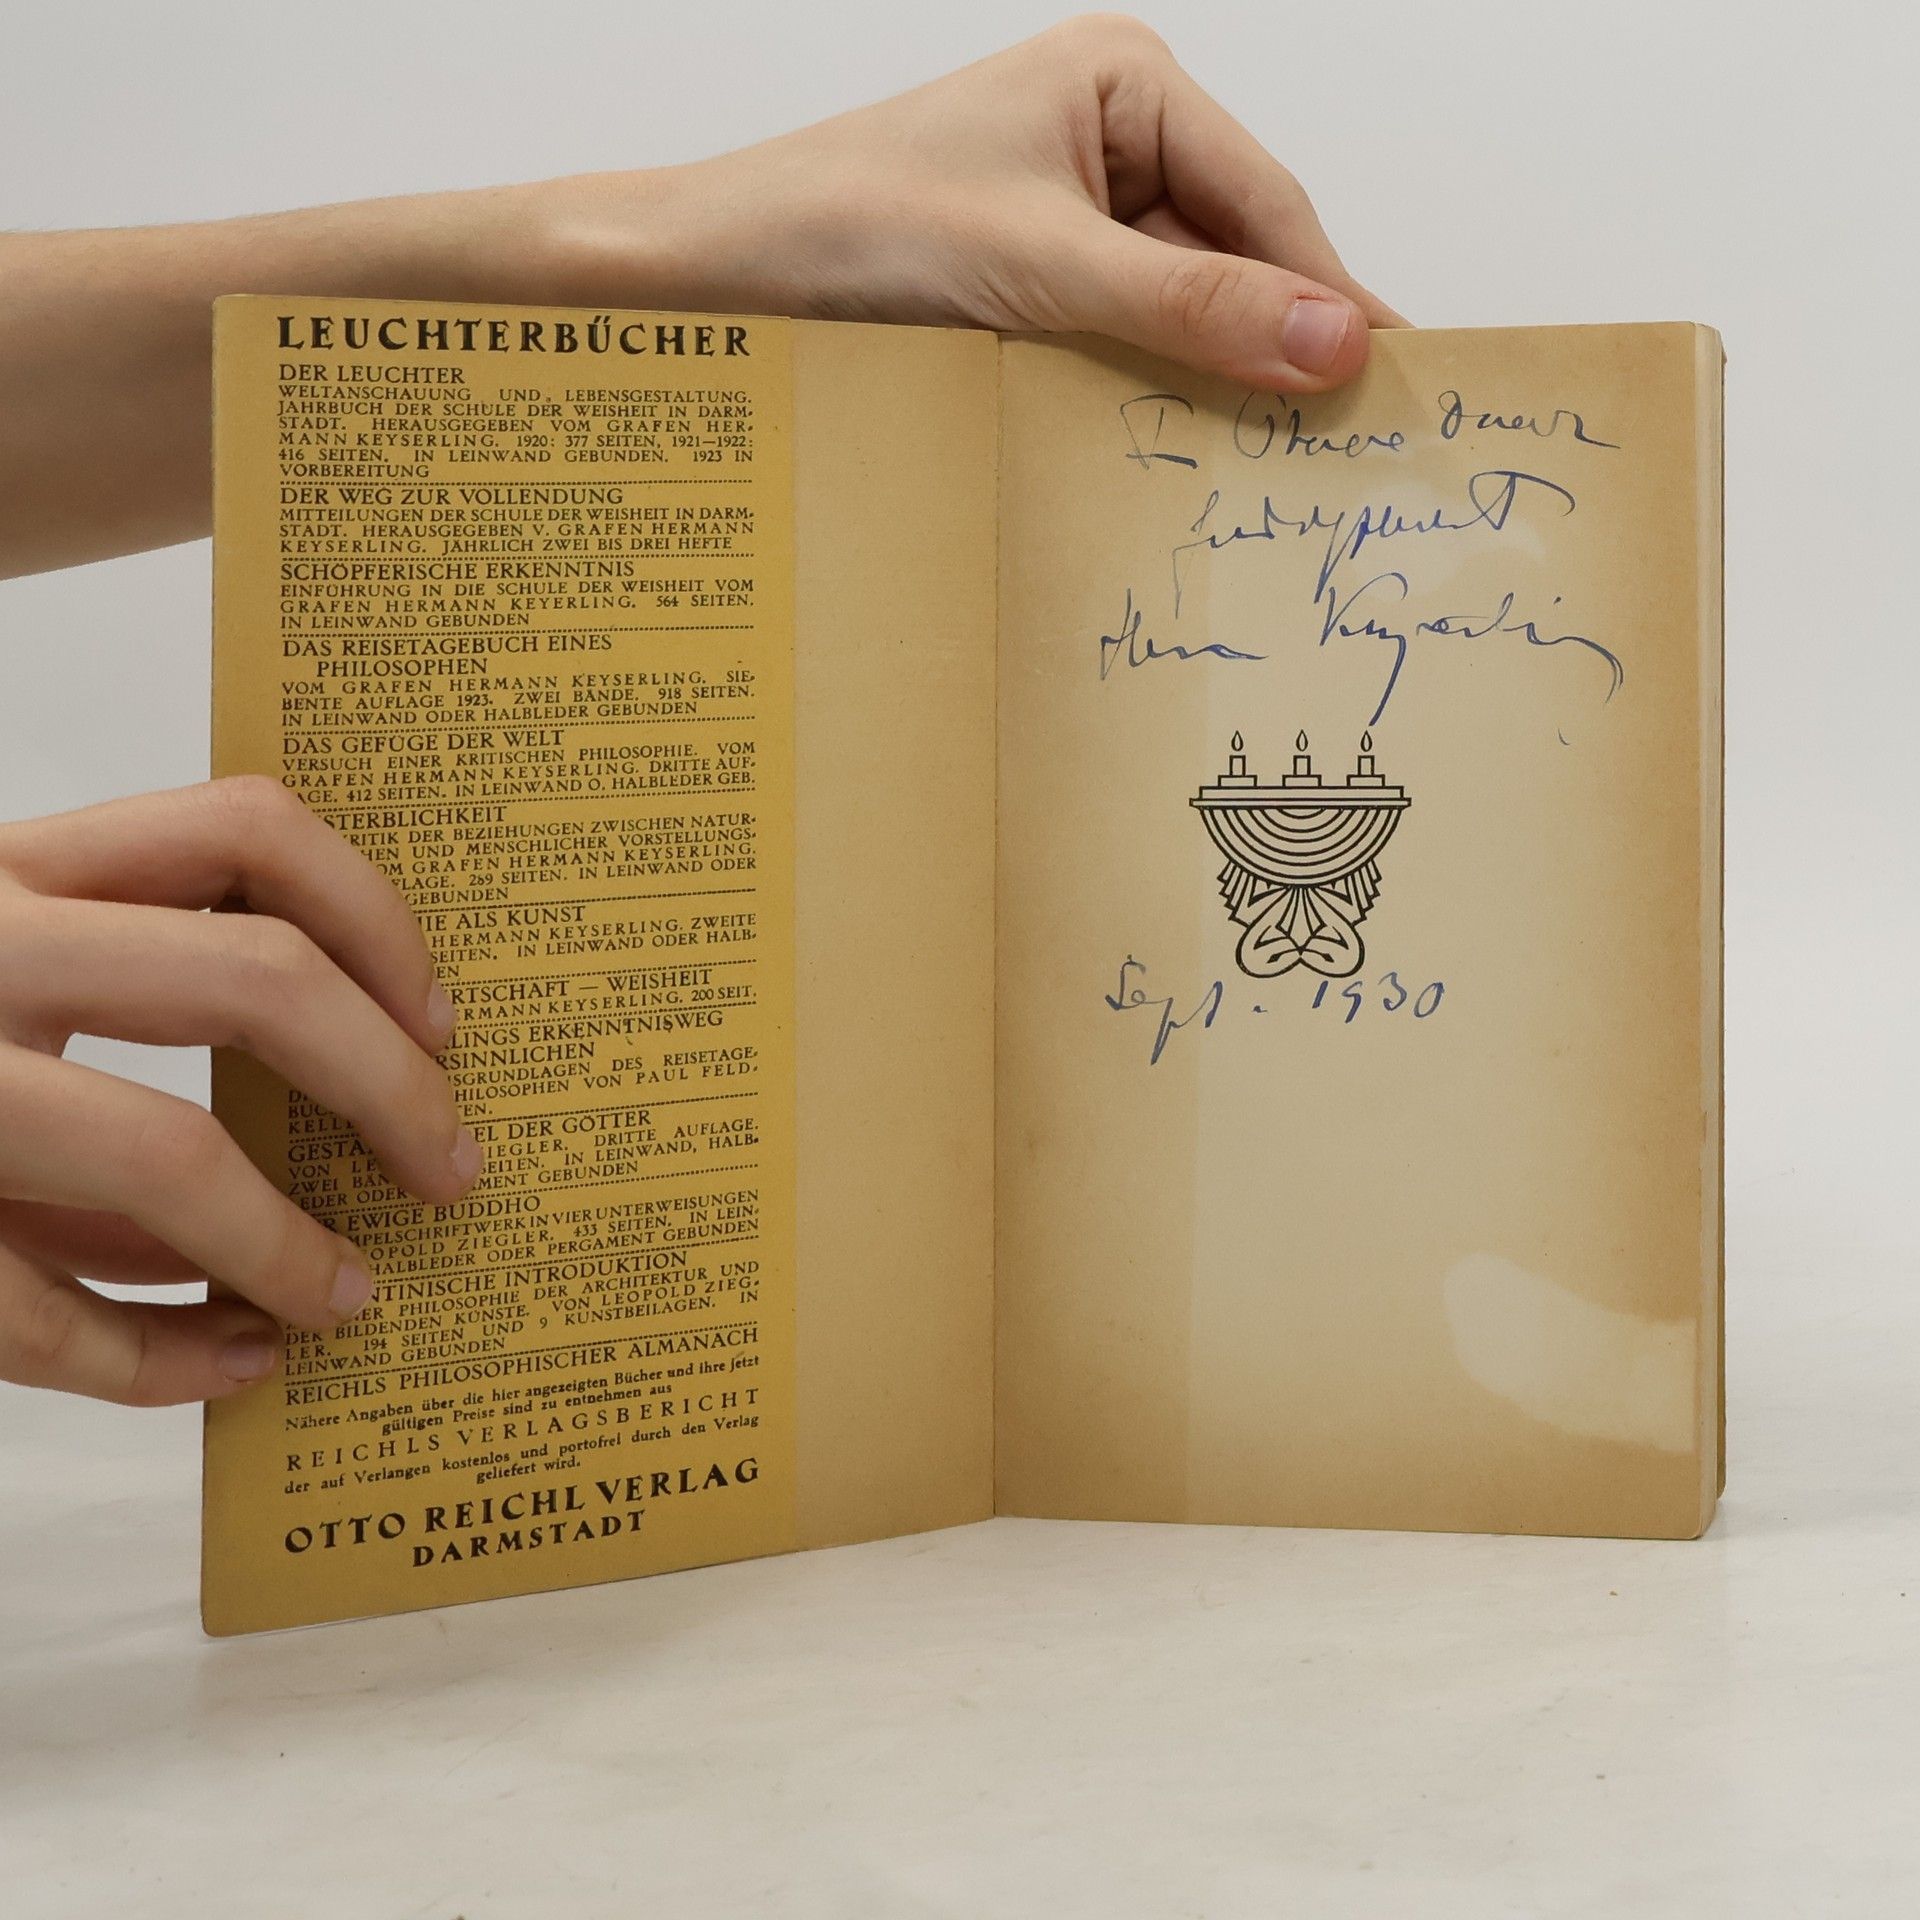 LEUCHTERBÜCHER
DER LEUCHTER
WELTANSCHAUUNG UND LEBENSGESTALTUNG.
JAHRBUCH DER SCHULE DER WEISHEIT IN DARM-
STADT. HERAUSGEGEBEN VOM GRAFEN HER-
MANN KEYSERLING. 1920: 377 SEITEN, 1921—1922:
416 SEITEN. IN LEINWAND GEBUNDEN. 1923 IN
VORBEREITUNG
DER WEG ZUR VOLLENDUNG
MITTEILUNGEN DER SCHULE DER WEISHEIT IN DARM-
STADT. HERAUSGEGEBEN V. GRAFEN HERMANN
KEYSERLING. JÄHRLICH ZWEI BIS DREI HEFTE
SCHÖPFERISCHE ERKENNTNIS
EINFÜHRUNG IN DIE SCHULE DER WEISHEIT VOM
GRAFEN HERMANN KEYERLING. 564 SEITEN.
IN LEINWAND GEBUNDEN
DAS REISETAGEBUCH EINES
PHILOSOPHEN
VOM GRAFEN HERMANN KEYSERLING. SIE-
BENTE AUFLAGE 1923. ZWEI BÄNDE. 918 SEITEN.
IN LEINWAND ODER HALBLEDER GEBUNDEN
DAS GEFÜGE DER WELT
VERSUCH EINER KRITISCHEN PHILOSOPHIE. VOM
GRAFEN HERMANN KEYSERLING. DRITTE AUF-
AGE. 412 SEITEN. IN LEINWAND O. HALBLEDER GEB.
STERBLICHKEIT
KRITIK DER BEZIEHUNGEN ZWISCHEN NATUR-
HEN UND MENSCHLICHER VORSTELLUNGS-
OM GRAFEN HERMANN KEYSERLING.
FLAGE. 289 SEITEN. IN LEINWAND ODER
GEBUNDEN
HIE ALS KUNST
HERMANN KEYSERLING. ZWEITE
SEITEN. IN LEINWAND ODER HALB-
EN
RTSCHAFT — WEISHEIT
ERMANN KEYSERLING. 200 SEIT.
LINGS ERKENNTNISWEG
RSINNLICHEN
SGRUNDLAGEN DES REISETAGE-
HILOSOPHEN VON PAUL FELD-
KELL TEN.
EL DER GÖTTER
GESTA
VON LE ZIEGLER. DRITTE AUFLAGE.
ZWEI BÄN SEITEN. IN LEINWAND, HALB-
EDER ODER AMENT GEBUNDEN
R EWIGE BUDDHO
MPELSCHRIFTWERK IN VIER UNTERWEISUNGEN
OPOLD ZIEGLER. 433 SEITEN. IN LEIN-
HALBLEDER ODER PERGAMENT GEBUNDEN
NTINISCHE INTRODUKTION
NER PHILOSOPHIE DER ARCHITEKTUR UND
DER BILDENDEN KÜNSTE. VON LEOPOLD ZIEG-
LER. 194 SEITEN UND 9 KUNSTBEILAGEN. IN
LEINWAND GEBUNDEN
REICHLS PHILOSOPHISCHER ALMANACH
Nähere Angaben über die hier angezeigten Bücher und ihre jetzt
gültigen Preise sind zu entnehmen aus
REICHLS VERLAGSBERICHT
der auf Verlangen kostenlos und portofrei durch den Verlag
geliefert wird.
OTTO REICHL VERLAG
DARMSTADT
Keyserling
Sept. 1930